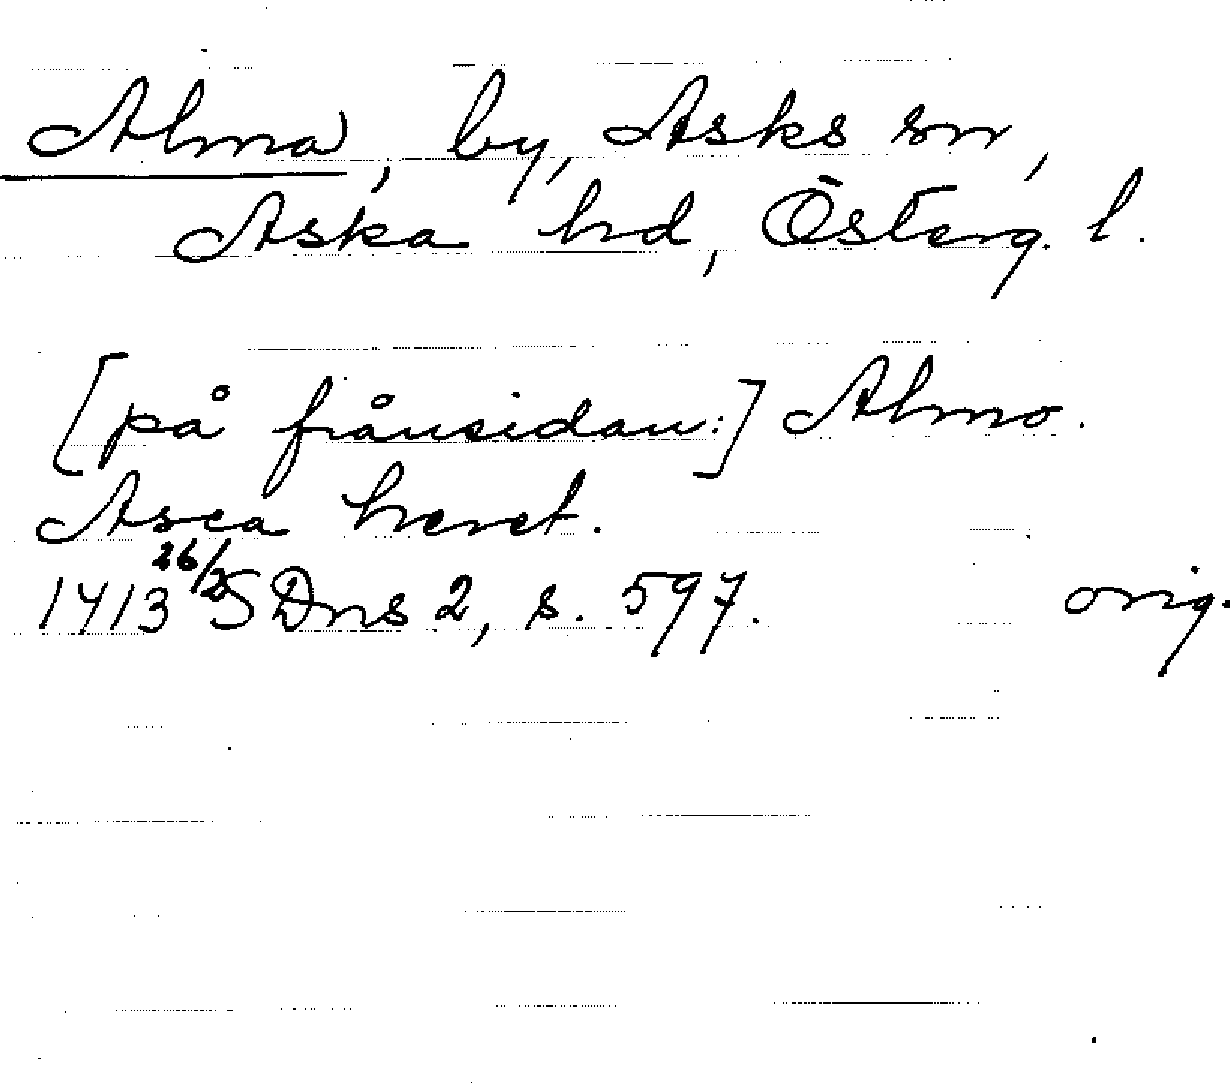 Alma, by, Asks sn,
Aska hd, Österg. l.
[på frånsidan:] Almo.
Asca heret.
1413 26/2 SDns 2, s. 597. orig.